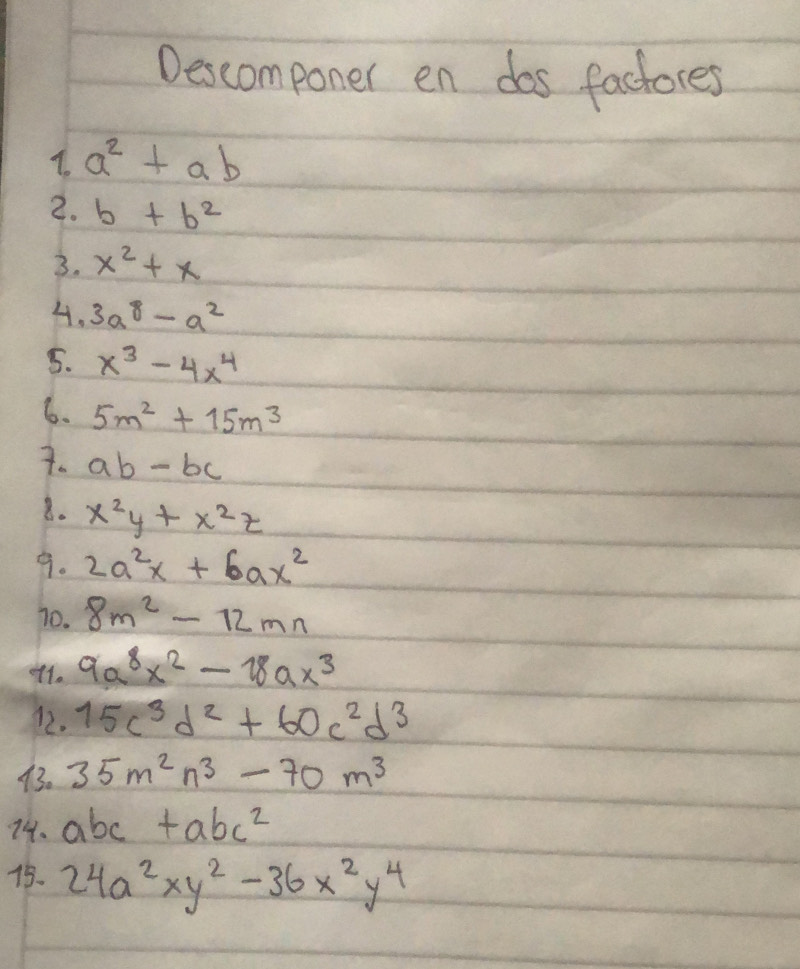 Descomponer en dos factores
1. a² + ab
2. b + b²
3. x² + x
4. 3a⁸ - a²
5. x³ - 4x⁴
6. 5m² + 15m³
7. ab - bc
8. x²y + x²z
9. 2a²x + 6ax²
10. 8m² - 12mn
11. 9a⁸x² - 18ax³
12. 15c³d² + 60c²d³
13. 35m²n³ - 70m³
14. abc + abc²
15. 24a²xy² - 36x²y⁴